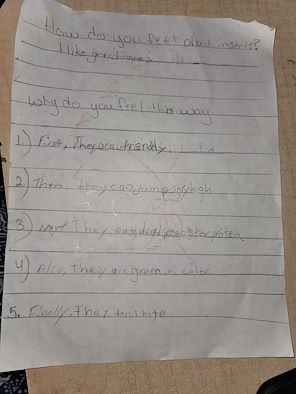 How do you feel about insects?
I like grasshoppers
Why do you feel this way
1.) First, They are friendly
2) Then, they can jump very high
3) Next They eat dead insects for protein
4) Also, they are green in color
5. Finally, They don't bite